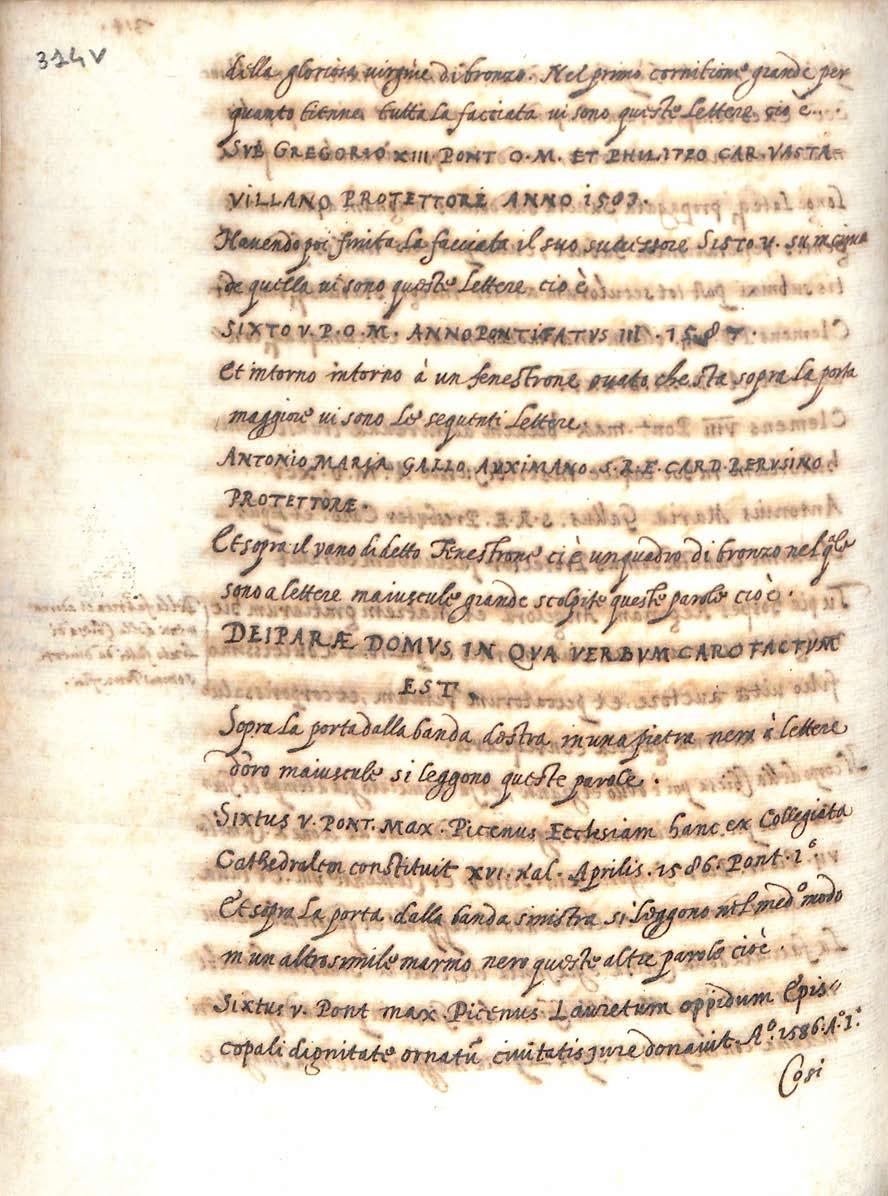 324v
della gloriosa virgine di bronzo. Nel primo cornitione grande per
quanto tienne tutta la facciata vi sono queste lettere cio è...
SVB GREGORIO XIII PONT O.M. ET PHILIPPO CAR. VASTA-
VILLANO PROTETTORE ANNO 1583.
Havendo poi finita la facciata il suo sucessore Sisto V. su in cima
de quella vi sono queste lettere cio è
SIXTO V. P. O. M. ANNO PONTIFATVS III. 1587.
Et intorno intorno à un fenestrone ovato che sta sopra la porta
maggiore vi sono le sequenti lettere.
ANTONIO MARIA GALLO AUXIMANO S.R.E. CARD. PERUSINO
PROTETTORÆ.
Et sopra il vano di detto Fenestrone ci è un quadro di bronzo nel qle
sono a lettere maiuscule grande scolpite queste parole cio è.
DEIPARÆ DOMVS IN QVA VERBVM CARO FACTVM
EST.
Sopra la porta dalla banda destra in una pietra nera à lettere
d'oro maiuscule si leggono queste parole.
Sixtus V. PONT. Max. Picenus Ecclesiam hanc ex Collegiata
Cathedralem constituit XVI. Kal. Aprilis. 1586. Pont. Iº
Et sopra la porta dalla banda sinistra si leggono nel medº modo
in un altro simile marmo nero queste altre parole cioè.
Sixtus V. Pont max. Picenus Lauretum oppidum Epis=
copali dignitate ornatũ civitatis jure donavit Aº. 1586. Aº. Iº
Cosi